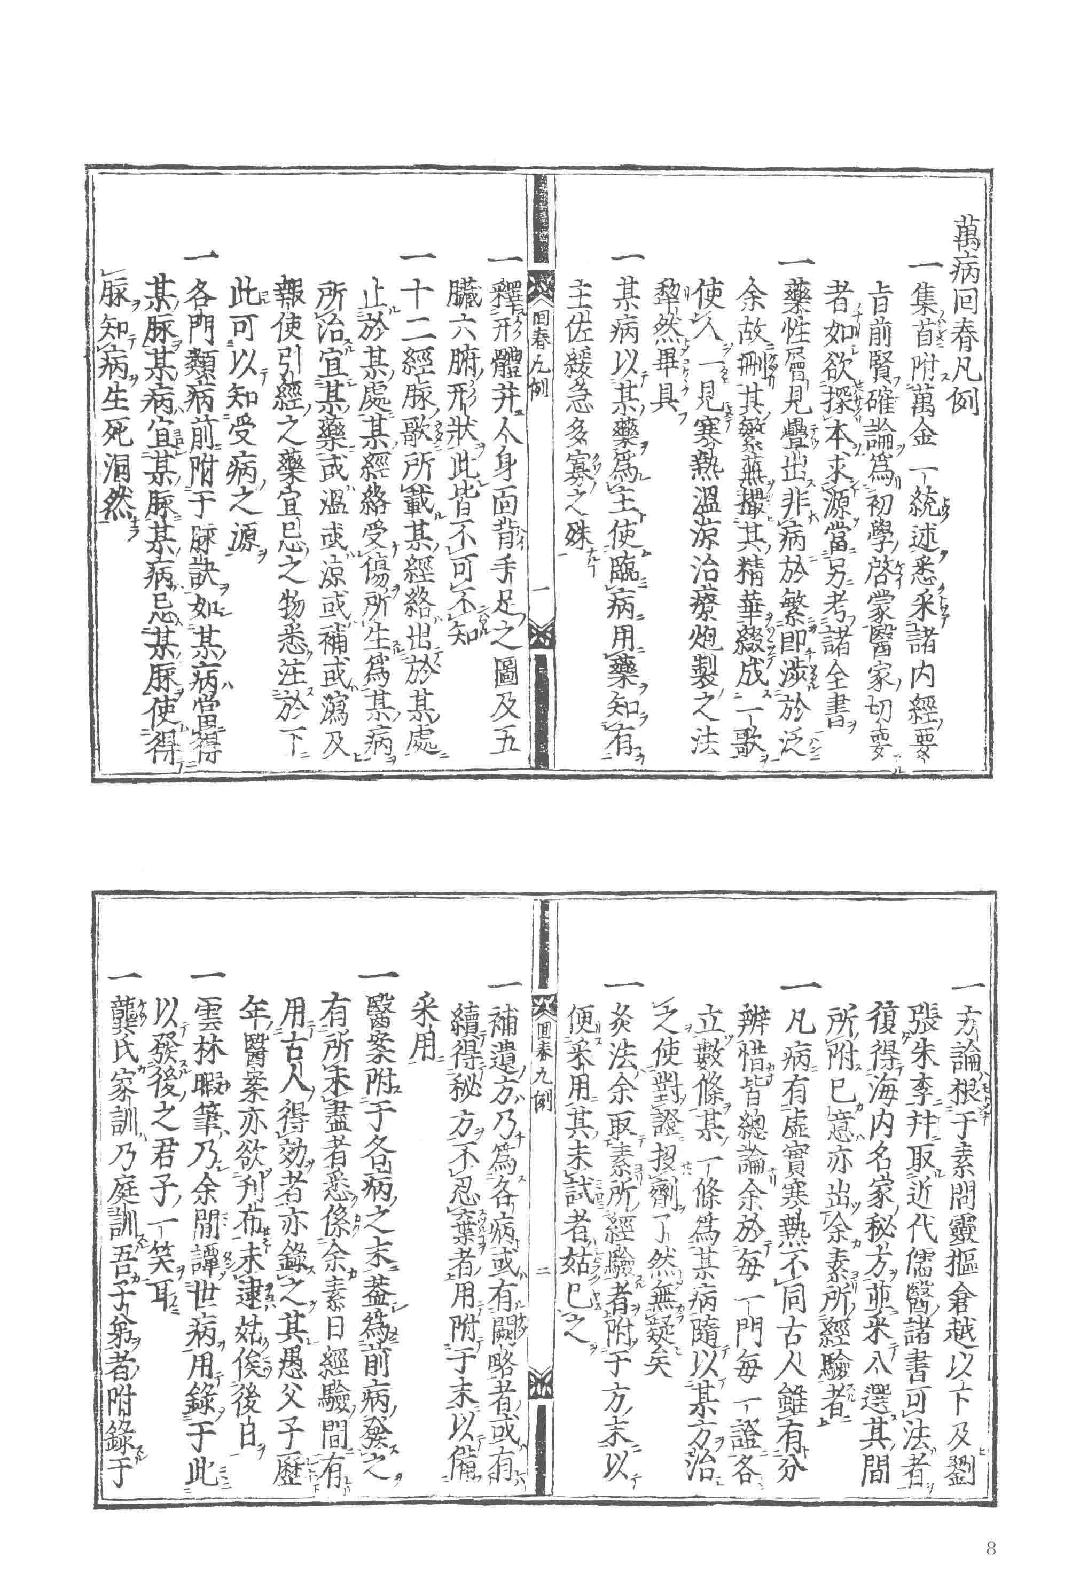 萬病回春凡例
一集首附萬金一統述悉采諸內經要
旨前賢確論為初學啓蒙醫家切要
者如欲探本求源當另考諸全書
一藥性屢見疊出非病於繁即涉於泛
余故刪其繁蕪撮其精華綴成一歌
使人一見寒熱溫涼治療炮製之法
犂然畢具
一某病以某藥為主使臨病用藥知有
主佐緩急多寡之殊
回春凡例
一
一釋形體并人身面背手足之圖及五
臟六腑形狀此皆不可不知
一十二經脉歌所載某經絡出於某處
止於某處某經絡受傷所生為某病
所治宜某藥或溫或涼或補或瀉及
報使引經之藥宜忌之物悉注於下
此可以知受病之源
一各門類病前附于脉訣如某病當得
某脉某病宜某脉某病忌某脉使得
脉知病生死洞然
一方論根于素問靈樞倉越以下及劉
張朱李并取近代儒醫諸書可法者
復得海內名家秘方並采入選其間
所附已意亦出余素所經驗者
一凡病有虛實寒熱不同古人雖有分
辨惜皆總論余於每一門每一證各
立數條某一條為某病隨以某方治
之使對證投劑了然無疑矣
一灸法余取素所經驗者附于方末以
便采用其未試者姑已之
回春凡例
二
一補遺方乃為各病或有闕略者或有
續得秘方不忍棄者用附于末以備
采用
一醫案附于各病之末蓋為前病發之
有所未盡者悉係余素日經驗間有
用古人得効者亦錄之其愚父子歷
年醫案亦欲刊布未逮姑俟後日
一雲林暇筆乃余閒譚世病用錄于此
以發後之君子一笑耳
一龔氏家訓乃庭訓吾子躬者附錄于
8